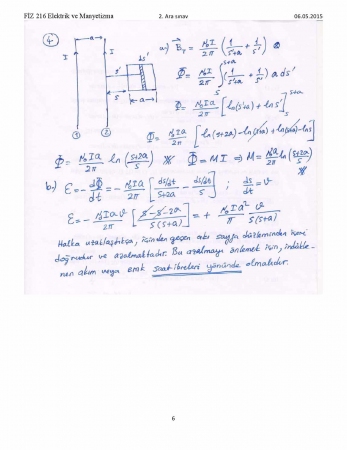 FİZ 216 Elektrik ve Manyetizma 2. Ara sınav 06.05.2015
4.
a
I I
s' ds'
s a
1 2
a) B_T = μ₀I/2π (1/(s'+a) + 1/s') ⊗
Φ = μ₀I/2π ∫_s^{s+a} (1/(s'+a) + 1/s') a ds'
Φ = μ₀Ia/2π [ln(s'+a) + ln s']_s^{s+a}
Φ = μ₀Ia/2π [ln(s+2a) - ln(s+a) + ln(s+a) - ln s]
Φ = μ₀Ia/2π ln((s+2a)/s) Φ = MI ⇒ M = μ₀a/2π ln((s+2a)/s)
b) ε = -dΦ/dt = -μ₀Ia/2π [(ds/dt)/(s+2a) - (ds/dt)/s] ; ds/dt = v
ε = -μ₀Iav/2π [(s-s-2a)/(s(s+2a))] = + μ₀Ia²/π v/(s(s+2a))
Halka uzaklaştıkça, içinden geçen akı sayfa düzleminden içeri
doğrudur ve azalmaktadır. Bu azalmayı önlemek için, indükle-
nen akım veya emk saat ibreleri yönünde olmalıdır.
6